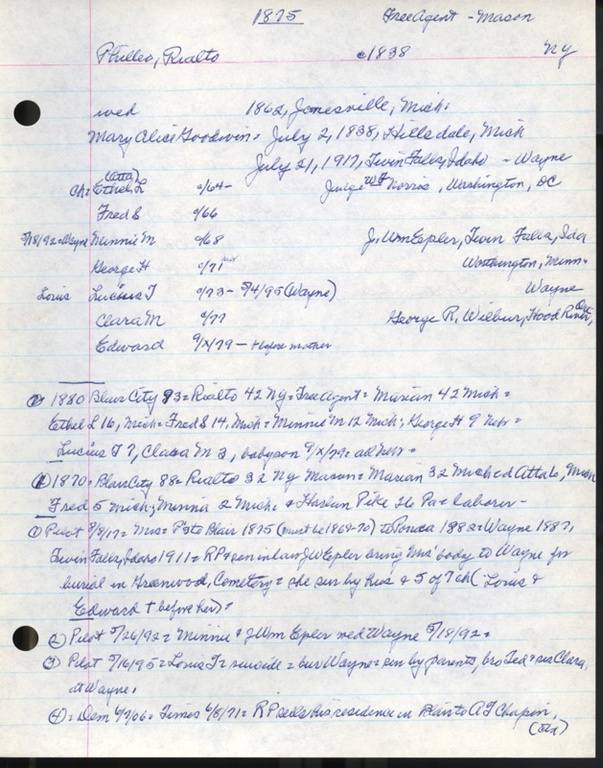 1875 Tree Agent - Mason
Philleo, Rialto c1838 NY
wed 1862, Jonesville, Mich:
Mary Alice Goodwin, July 2, 1838, Hillsdale, Mich
July 21, 1917, Twin Falls, Idaho - Wayne
(Etta)
Ch: Ethel L c/64- Judge WF Norris, Washington, DC
Fred S c/66
5/18/92=Wayne Minnie M c/68 J. Wm Epler, Twin Falls, Ida
George H c/71 Worthington, Minn-
Louis Lucius T c/73- 5/4/95 (Wayne) Wayne
Clara M c/77 George R. Wilbur, Hood River, Ore
Edward 9/x/79 - + before mother
1880 Blair City 93=Rialto 42 NY=Tree Agent= Marian 42 Mich=
Ethel L 16, Mich= Fred S 14, Mich= Minnie M 12 Mich; George H 9 Nebr=
Lucius T 7, Clara M 3, babyson 9/x/79= all Nebr=
1870= Blair City 88= Rialto 32 NY Mason= Marian 32 Mich Etta 6, Mich
Fred 5 Mich; Minnie 2 Mich= & Harlan Pike 26 Pa= laborer-
① Pilot 8/8/17= Mrs= P's to Blair 1875 (must be 1869-70) to Ponca 1882= Wayne 1887,
Twin Falls, Idaho 1911= RP & son in law JW Epler bring Mrs' body to Wayne for
burial in Greenwood, Cemetery= she sur by hus & 5 of 7 ch (Louis &
Edward + before her)=
② Pilot 5/26/92= Minnie & J Wm Epler wed Wayne 5/18/92=
③ Pilot 5/16/95= Louis T= suicide= bur Wayne= sur by parents, bro Fed & sis Clara,
at Wayne,
④= Dem 6/7/06= Times 6/8/71= RP sells his residence in Blair to A F Chapin,